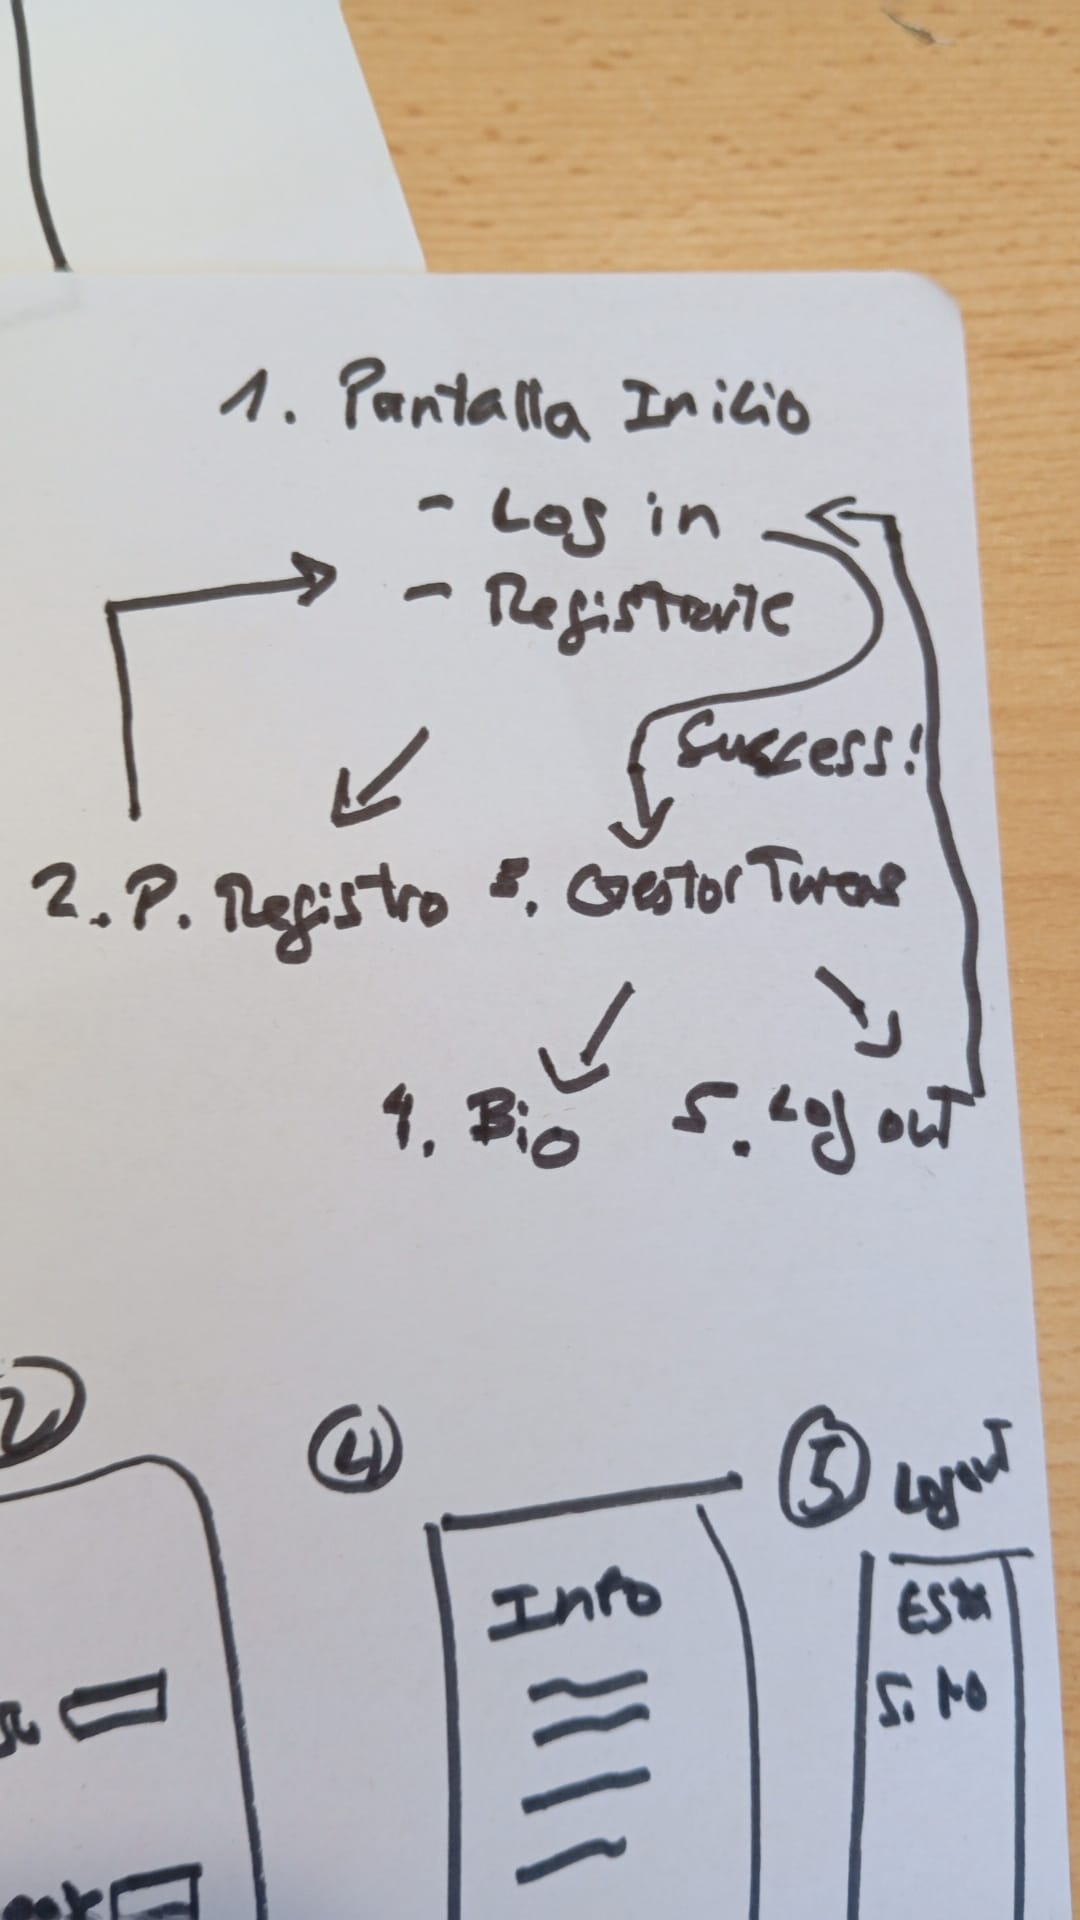 1. Pantalla Inicio
- Log in
- Registrarte
Success!
2. P. Registro 3. Gestor Tareas
4. Bio 5. Log out
2
4
5 Logout
Info
Si No